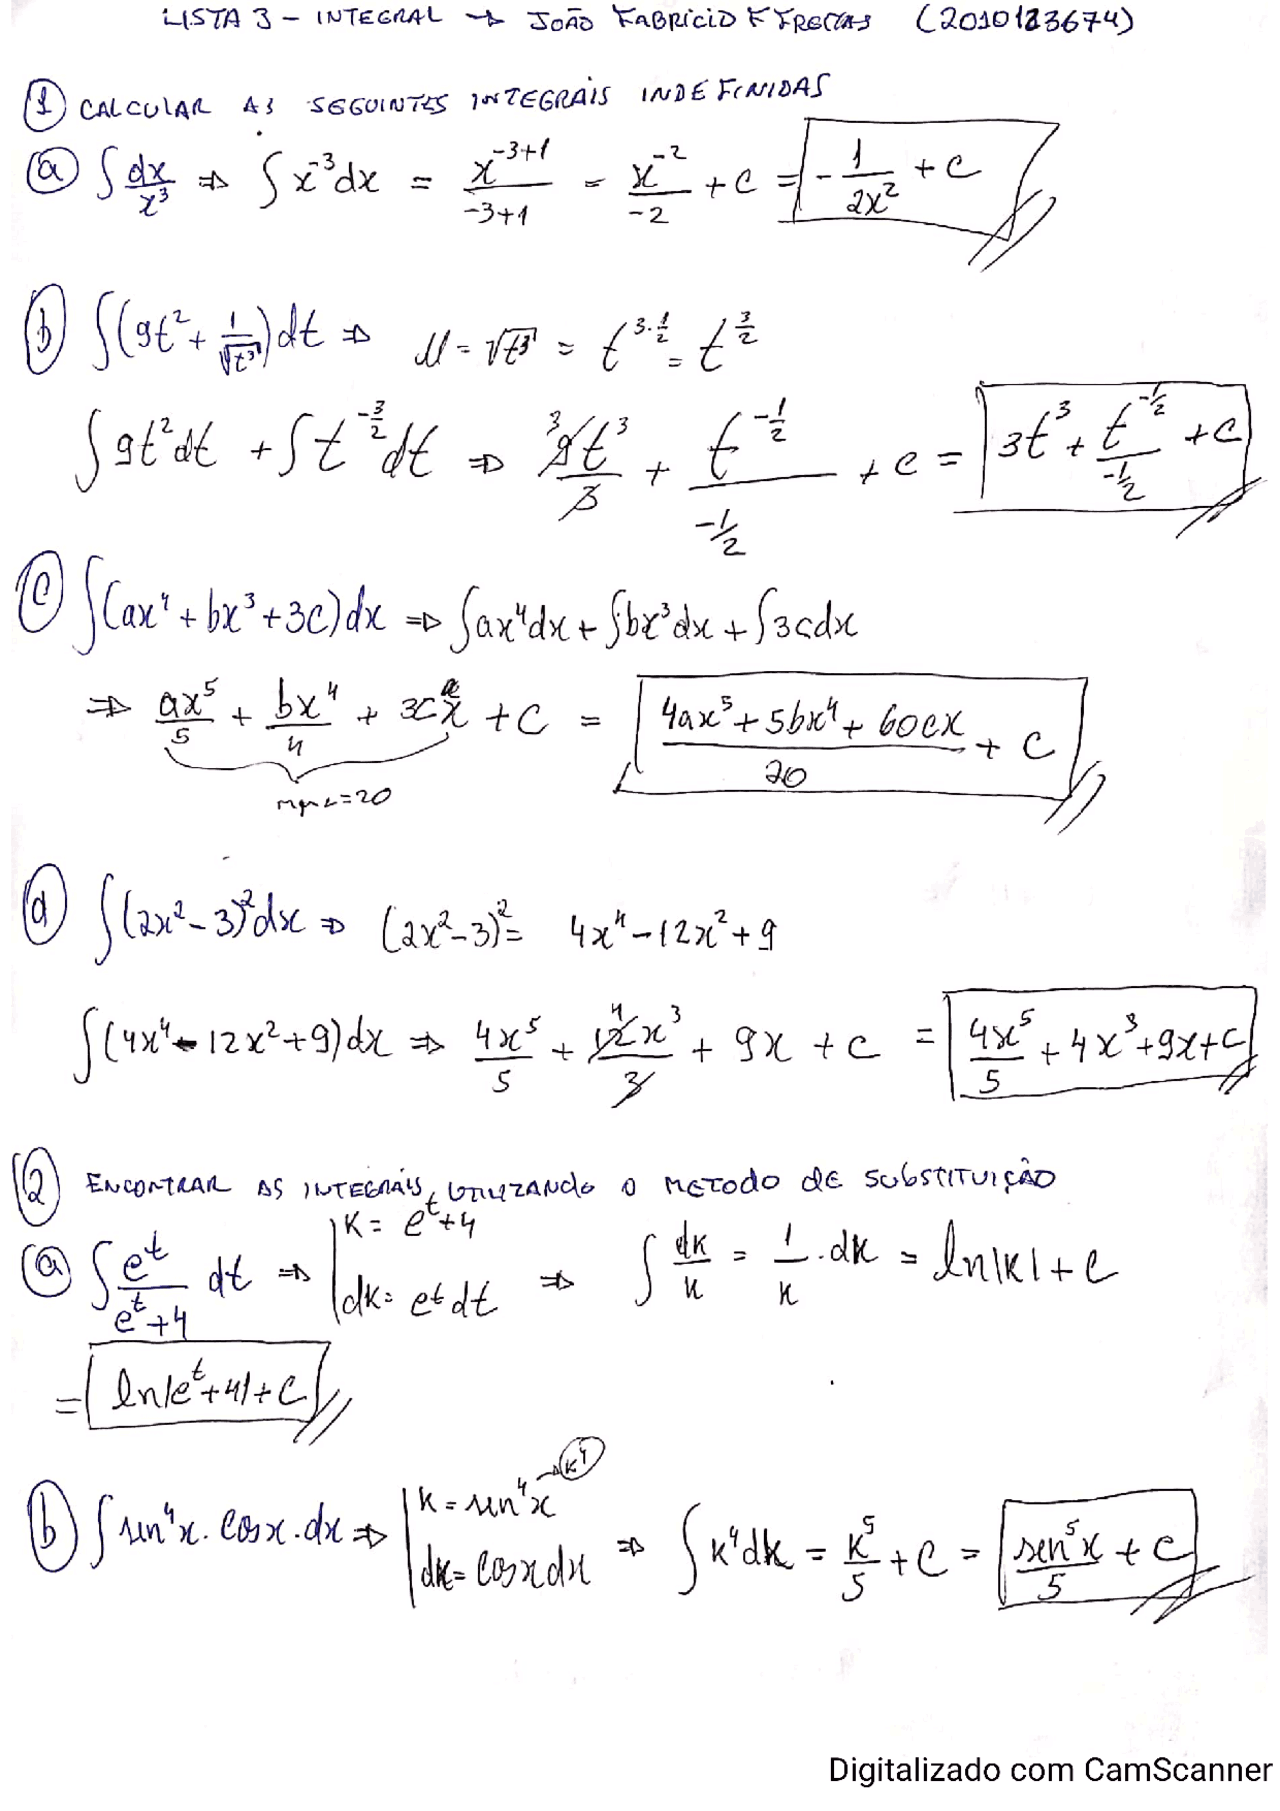 LISTA 3 - INTEGRAL → JOÃO FABRICIO F FREITAS (2010123674)
① CALCULAR AS SEGUINTES INTEGRAIS INDEFINIDAS
ⓐ ∫ dx/x³ ⇒ ∫ x⁻³dx = x⁻³⁺¹/-3+1 = x⁻²/-2 + C = - 1/2x² + C
ⓑ ∫(9t² + 1/√t³)dt ⇒ u = √t³ = t^(3·1/2) = t^(3/2)
∫9t²dt + ∫t^(-3/2)dt ⇒ ³9t³/3 + t^(-1/2)/(-1/2) + C = 3t³ + t^(-1/2)/(-1/2) + C
ⓒ ∫(ax⁴ + bx³ + 3c)dx ⇒ ∫ax⁴dx + ∫bx³dx + ∫3cdx
⇒ ax⁵/5 + bx⁴/4 + 3cx + C = (4ax⁵ + 5bx⁴ + 60cx)/20 + C
=20
ⓓ ∫(2x² - 3)²dx ⇒ (2x² - 3)² = 4x⁴ - 12x² + 9
∫(4x⁴ - 12x² + 9)dx ⇒ 4x⁵/5 + ⁴12x³/3 + 9x + C = 4x⁵/5 + 4x³ + 9x + C
② ENCONTRAR AS INTEGRAIS, UTILIZANDO O METODO DE SUBSTITUIÇÃO
ⓐ ∫ e^t/(e^t + 4) dt ⇒ | K = e^t + 4
dK = e^t dt ⇒ ∫ dK/K = 1/K · dK = ln|K| + C
= ln|e^t + 4| + C
ⓑ ∫ sen⁴x · cosx · dx ⇒ | K = sen⁴x → K⁴
dK = cosx dx ⇒ ∫ K⁴dK = K⁵/5 + C = sen⁵x/5 + C
Digitalizado com CamScanner